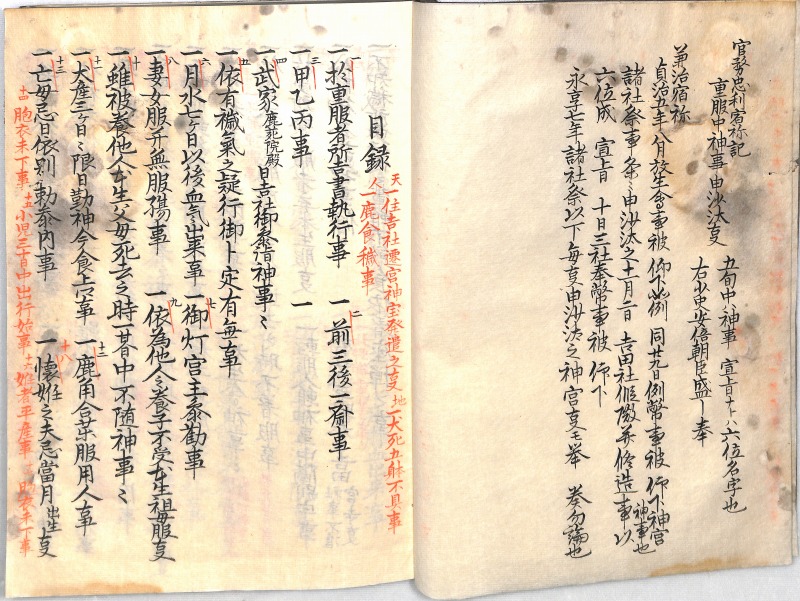 官務忠利宿祢記
重服中神事申沙汰事
五旬中神事 宣旨ナトハ六位名字也
右少史安倍朝臣盛〻奉
兼治宿祢
貞治五年八月放生会事被 仰下 例 同廿九日例幣事被 仰下神宮
神事也
諸社祭事条〻申沙汰之十一月二日 吉田社假殿并修造事以
六位成 宣旨 十日三社奉幣事被 仰下
永享七年諸社祭以下毎事申沙汰之神宮事モ奉
目録
天一住吉社遷宮神宝発遣之事 地一犬死五躰不具事
人一鹿食穢事
一 一於重服者所吉書執行事
二 一前三後一斎事
三 一甲乙丙事 一
四 一武家鹿苑院殿日吉社御参詣神事〻
五 一依有穢気之疑行御卜定有毎事
六 一月水七ケ日以後血気出来事
七 一御灯宮主参勤事
八 一妻女服并無服殤事
九 一依為他人令養子不受本生祖母服事
十 一雖被養他人本生父母死去之時一暮中不随神事〻
十一 一犬産三ケ日〻限日勤神今食上宣事
十二 一鹿角合薬服用人事
十三 一亡母忌日依別勅参内事
十八 一懐妊之夫忌當月出生事
十四 胞衣未下事 十五 小児三百中出行始事 十六 妊者平産事 胞衣未下事